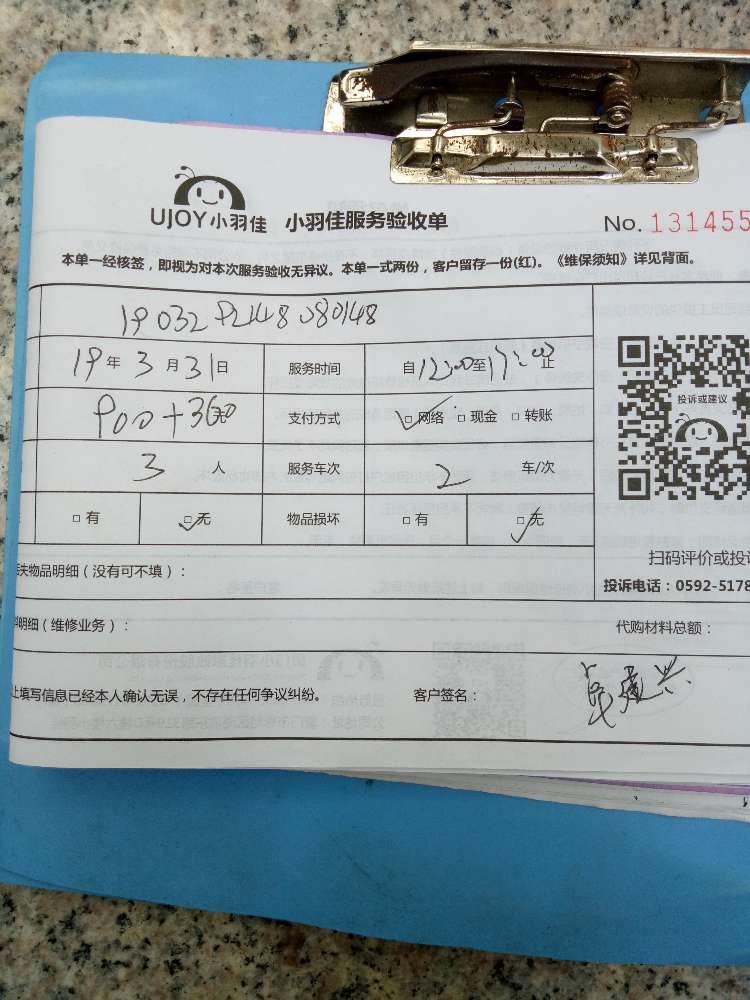 UJOY小羽佳 小羽佳服务验收单 No. 131455
本单一经核签，即视为对本次服务验收无异议。本单一式两份，客户留存一份(红)。《维保须知》详见背面。
19年3月31日 服务时间 自13:00至17:00止
900+360元 支付方式 网络 现金 转账
投诉或建议
3人 服务车次 2车/次
有 无 物品损坏 有 无
扫码评价或投
失物品明细（没有可不填）：
投诉电话：0592-5178
明细（维修业务）： 代购材料总额：
上填写信息已经本人确认无误，不存在任何争议纠纷。 客户签名：